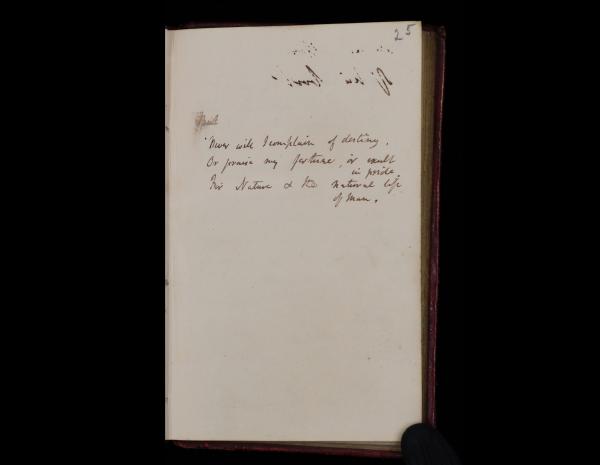 25
Never will I complain of destiny,
Or praise my fortune, or exult
in pride
For Nature & the national life
of Man.